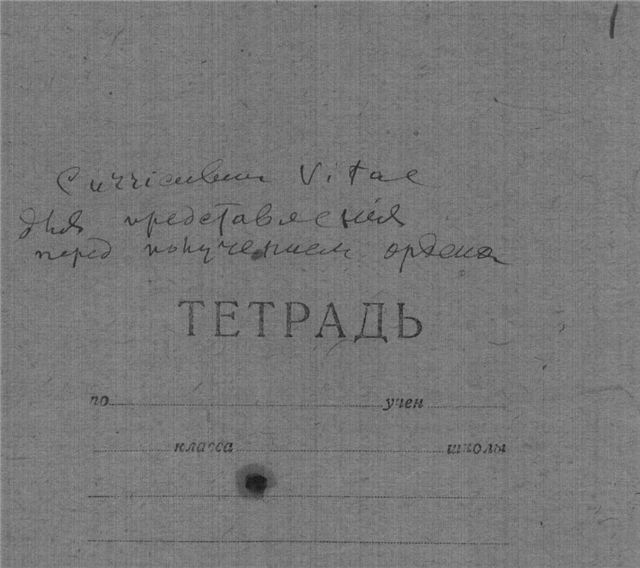 1
Curriculum Vitae
для представления
перед получением ордена
ТЕТРАДЬ
по учен
класса школы